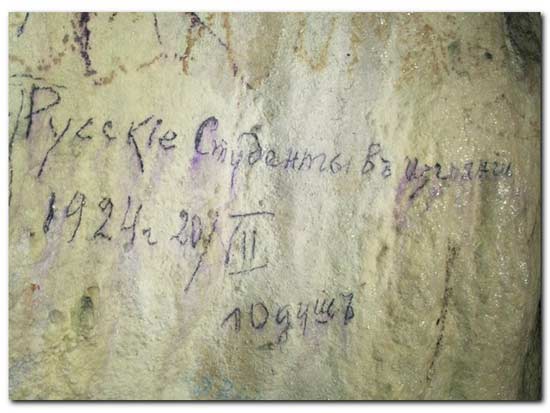 Русскіе Студенты въ изгнаніи
1924 г 20/VII
10 душъ